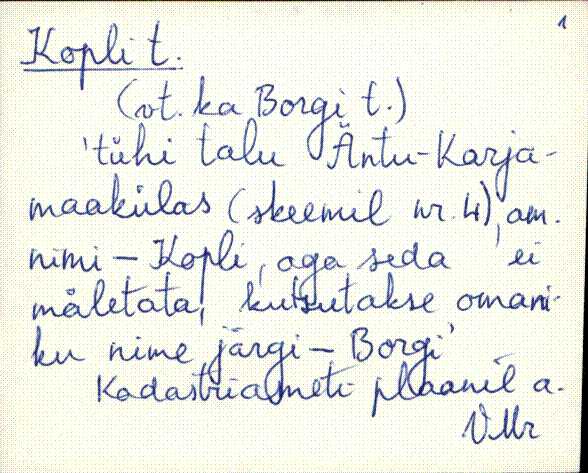 1
Kopli t.
(vt. ka Borgi t.)
'tühi talu Äntu-Karja-
maakülas (skeemil nr. 4), am.
nimi - Kopli, aga seda ei
mäletata, kutsutakse omani-
ku nime järgi - Borgi'
Kadastriameti plaanil a.
VMr